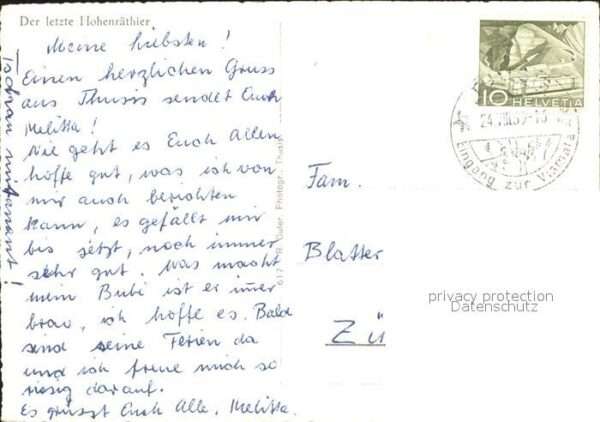 Der letzte Hohenräthier
Meine Liebsten!
Einen herzlichen Gruss
aus Thusis sendet Euch
Melitta!
Wie geht es Euch Allen,
hoffe gut, was ich von
mir auch berichten
kann, es gefällt mir
bis jetzt, noch immer
sehr gut. Was macht
mein Bubi ist er imer
brav, ich hoffe es. Bald
sind seine Ferien da
und ich freue mich so
riesig darauf.
Es grüsst Euch Alle, Melitta.
617 Photogr. Thusis
10 HELVETIA
24.VIII.
Eingang zur Viamala
Fam.
Blatter
Zü
privacy protection
Datenschutz